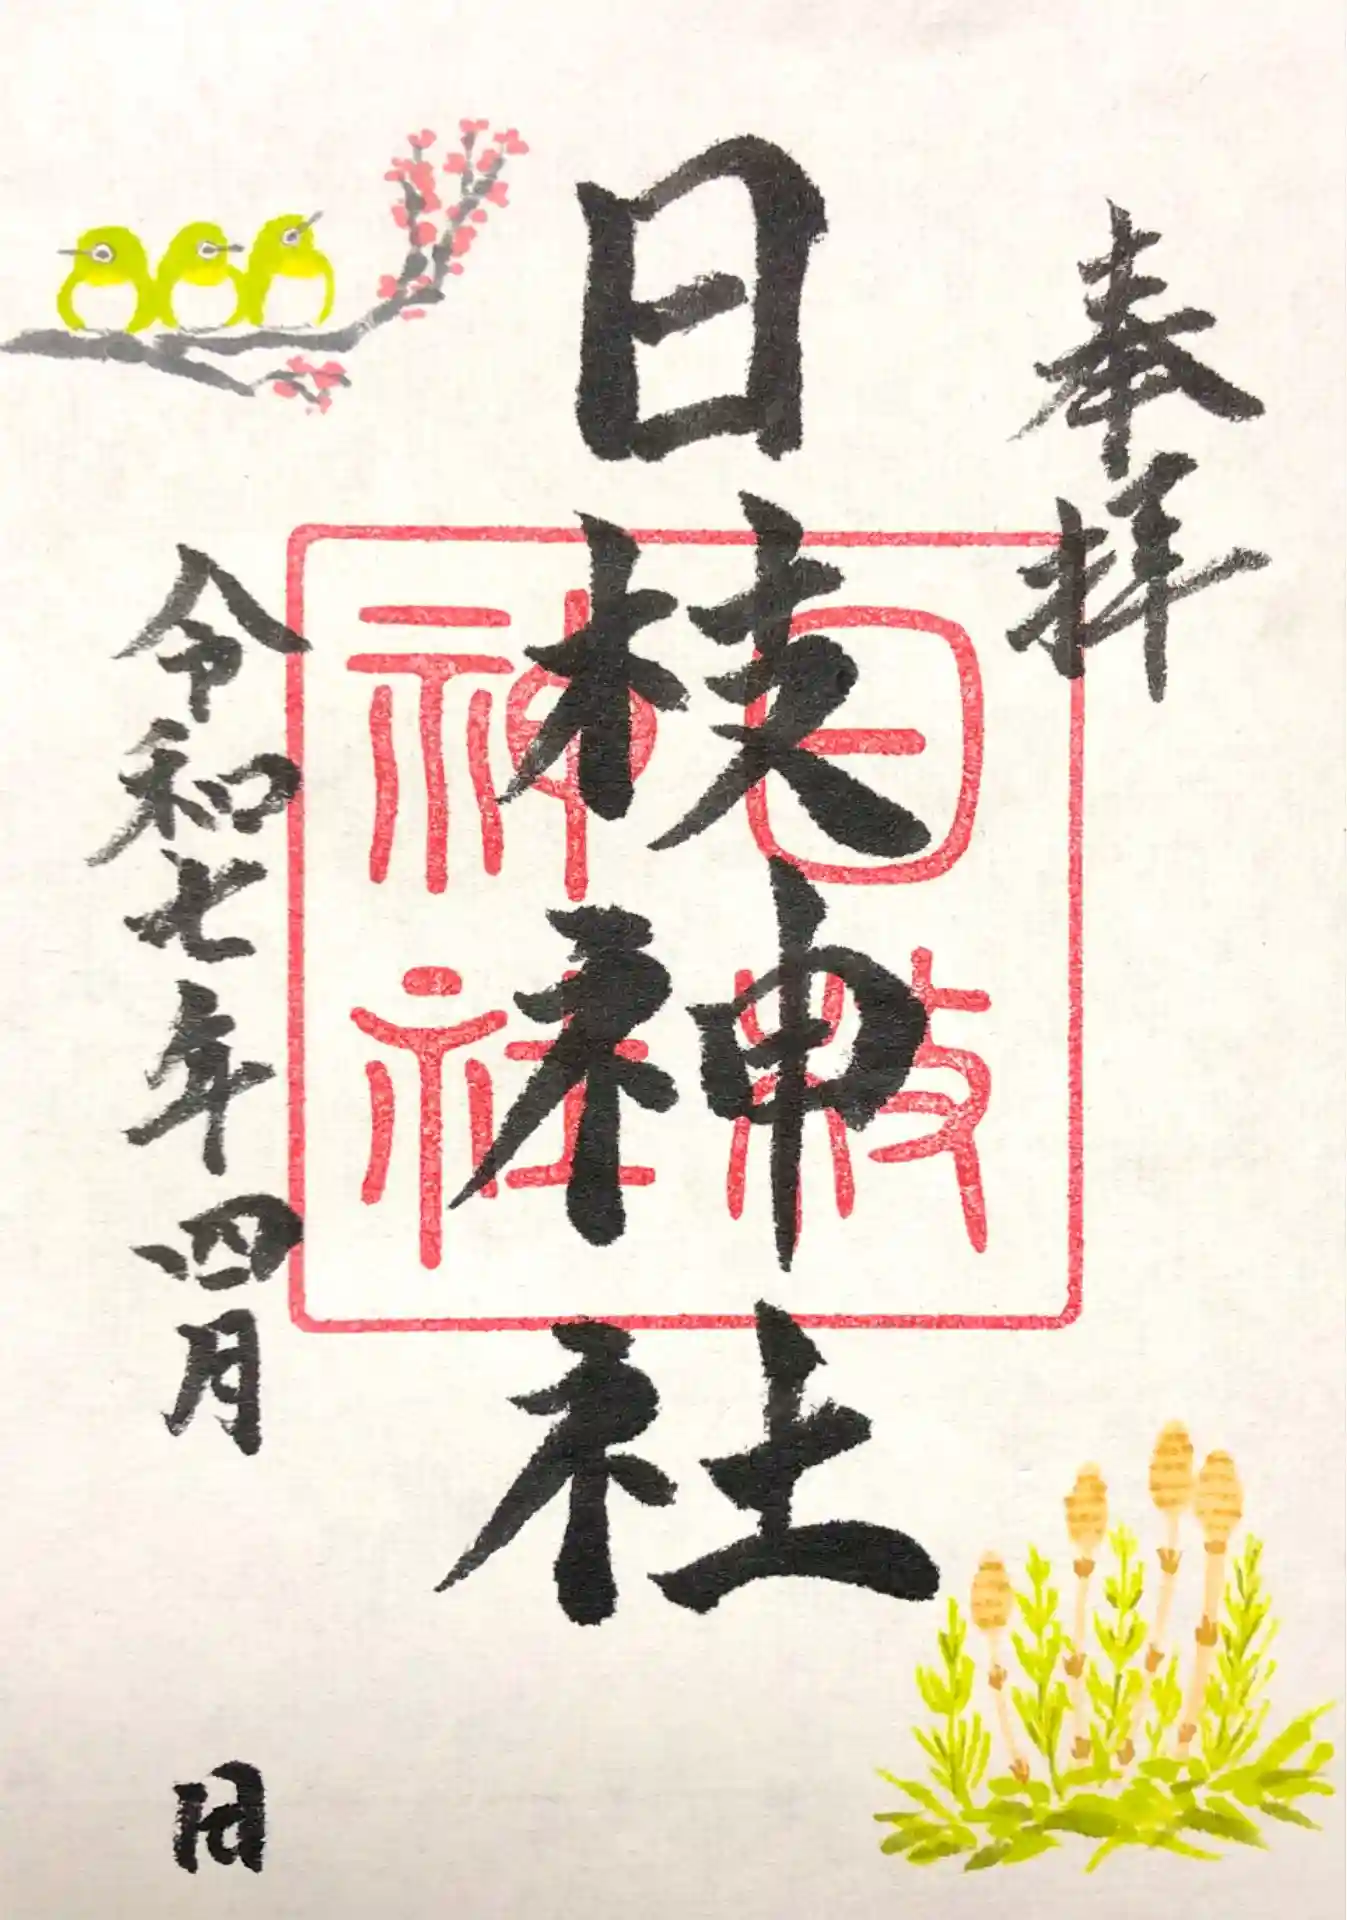 奉拝
日枝神社
日枝神社
令和七年四月 日